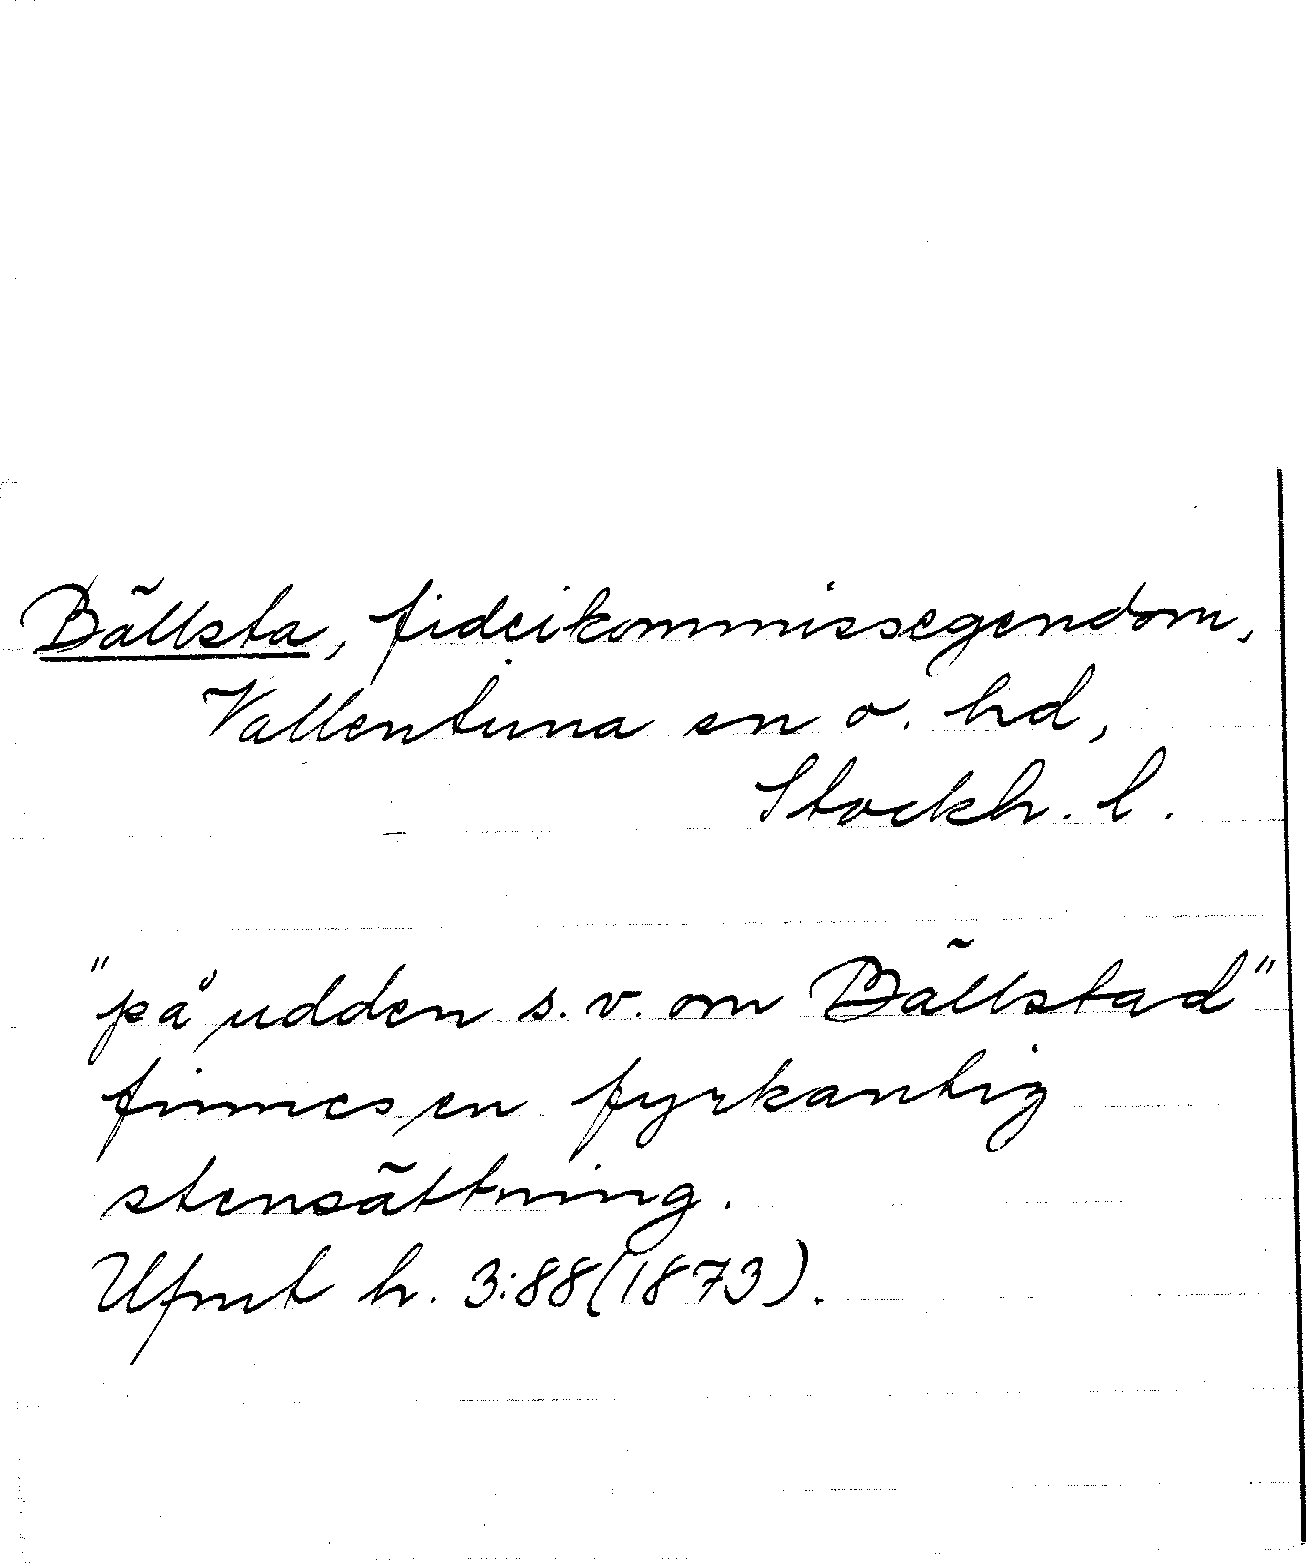 Bällsta, fideikommissegendom,
Vallentuna sn o. hd,
Stockh. l.
"på udden s.v. om Bällstad"
finnes en fyrkantig
stensättning.
Ufmt h. 3:88(1873).